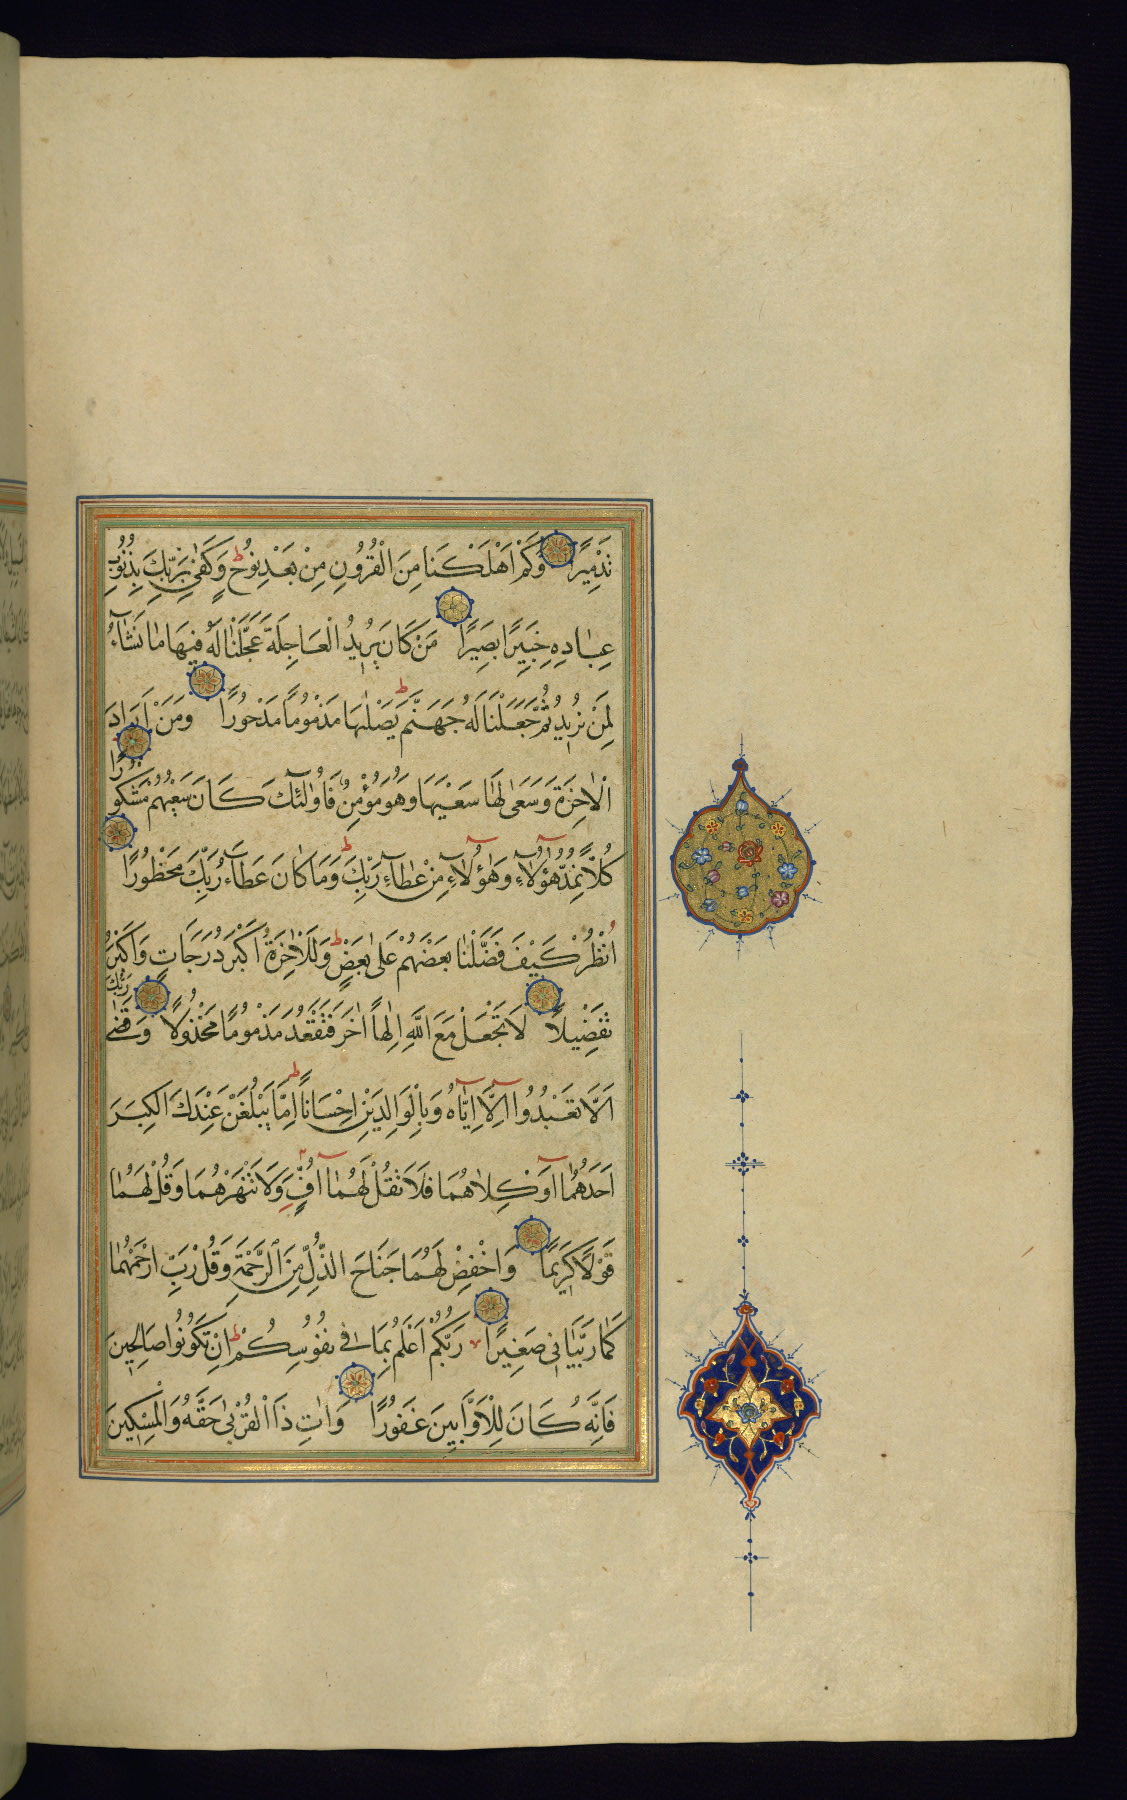 تَدْمِيرًا وَكَمْ اَهْلَكْنَا مِنَ الْقُرُونِ مِنْ بَعْدِ نُوحٍ ط وَكَفٰى بِرَبِّكَ بِذُنُوبِ
عِبَادِهِ خَبِيرًا بَصِيرًا مَنْ كَانَ يُرِيدُ الْعَاجِلَةَ عَجَّلْنَا لَهُ فِيهَا مَا نَشَآءُ
لِمَنْ نُرِيدُ ثُمَّ جَعَلْنَا لَهُ جَهَنَّمَ ط يَصْلٰيهَا مَذْمُومًا مَدْحُورًا وَمَنْ اَرَادَ
الْاٰخِرَةَ وَسَعٰى لَهَا سَعْيَهَا وَهُوَ مُؤْمِنٌ فَاُولٰٓئِكَ كَانَ سَعْيُهُمْ مَشْكُورًا
كُلًّا نُمِدُّ هٰٓؤُلَآءِ وَهٰٓؤُلَآءِ مِنْ عَطَآءِ رَبِّكَ ط وَمَا كَانَ عَطَآءُ رَبِّكَ مَحْظُورًا
اُنْظُرْ كَيْفَ فَضَّلْنَا بَعْضَهُمْ عَلٰى بَعْضٍ ط وَلَلْاٰخِرَةُ اَكْبَرُ دَرَجَاتٍ وَاَكْبَرُ
تَفْضِيلًا لَا تَجْعَلْ مَعَ اللّٰهِ اِلٰهًا اٰخَرَ فَتَقْعُدَ مَذْمُومًا مَخْذُولًا وَقَضٰى رَبُّكَ
اَلَّا تَعْبُدُوا اِلَّآ اِيَّاهُ وَبِالْوَالِدَيْنِ اِحْسَانًا ط اِمَّا يَبْلُغَنَّ عِنْدَكَ الْكِبَرَ
اَحَدُهُمَآ اَوْ كِلَاهُمَا فَلَا تَقُلْ لَهُمَآ اُفٍّ وَلَا تَنْهَرْهُمَا وَقُلْ لَهُمَا
قَوْلًا كَرِيمًا وَاخْفِضْ لَهُمَا جَنَاحَ الذُّلِّ مِنَ الرَّحْمَةِ وَقُلْ رَبِّ ارْحَمْهُمَا
كَمَا رَبَّيَانِى صَغِيرًا رَبُّكُمْ اَعْلَمُ بِمَا فِى نُفُوسِكُمْ ط اِنْ تَكُونُوا صَالِحِينَ
فَاِنَّهُ كَانَ لِلْاَوَّابِينَ غَفُورًا وَاٰتِ ذَا الْقُرْبٰى حَقَّهُ وَالْمِسْكِينَ